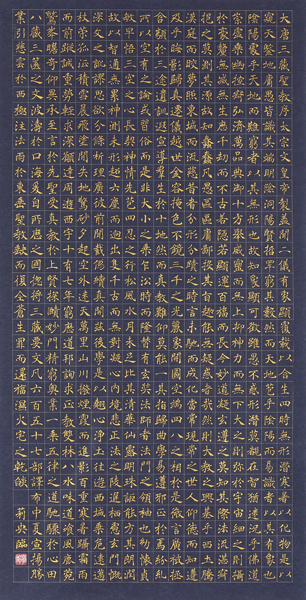 大唐三藏聖教序太宗文皇帝製蓋聞二儀有象顯覆載以含生四時無形潛寒暑以化物是以
窺天鑑地庸愚皆識其端明陰洞陽賢哲罕窮其數然而天地苞乎陰陽而易識者以其有象也
陰陽處乎天地而難窮者以其無形也故知象顯可徵雖愚不惑形潛莫覩在智猶迷況乎佛道
崇虛乘幽控寂弘濟萬品典御十方舉威靈而無上抑神力而無下大之則彌於宇宙細之則攝
於毫釐無滅無生歷千劫而不古若隱若顯運百福而長今妙道凝玄遵之莫知其際法流湛寂
挹之莫測其源故知蠢蠢凡愚區區庸鄙投其旨趣能無疑惑者哉然則大教之興基乎西土騰
漢庭而皎夢照東域而流慈昔者分形分跡之時言未馳而成化當常現常之世人仰德而知遵
及乎晦影歸真遷儀越世金容掩色不鏡三千之光麗象開圖空端四八之相於是微言廣被拯
含類於三途遺訓遐宣導群生於十地然而真教難仰莫能一其指歸曲學易遵邪正於焉紛糺
所以空有之論或習俗而是非大小之乘乍沿時而隆替有玄奘法師者法門之領袖也幼懷貞
敏早悟三空之心長契神情先苞四忍之行松風水月未足比其清華仙露明珠詎能方其朗潤故
以智通無累神測未形超六塵而迥出隻千古而無對凝心內境悲正法之陵遲栖慮玄門慨
深文之訛謬思欲分條析理廣彼前聞截偽續真開茲後學是以翹心淨土往遊西域乘危遠邁
杖策孤征積雪晨飛途閒失地驚砂夕起空外迷天萬里山川撥煙霞而進影百重寒暑躡霜雨
而前蹤誠重勞輕求深願達周遊西宇十有七年窮歷道邦詢求正教雙林八水味道飡風鹿菀
鷲峯瞻奇仰異承至言於先聖受真教於上賢探賾妙門精窮奧業一乘五律之道馳驟於心田
八藏三篋之文波濤於口海爰自所歷之國總將三藏要文凡六百五十七部譯布中夏宣揚勝
業引慈雲於西極注法雨於東垂聖教缺而復全蒼生罪而還福濕火宅之乾燄 莉央臨